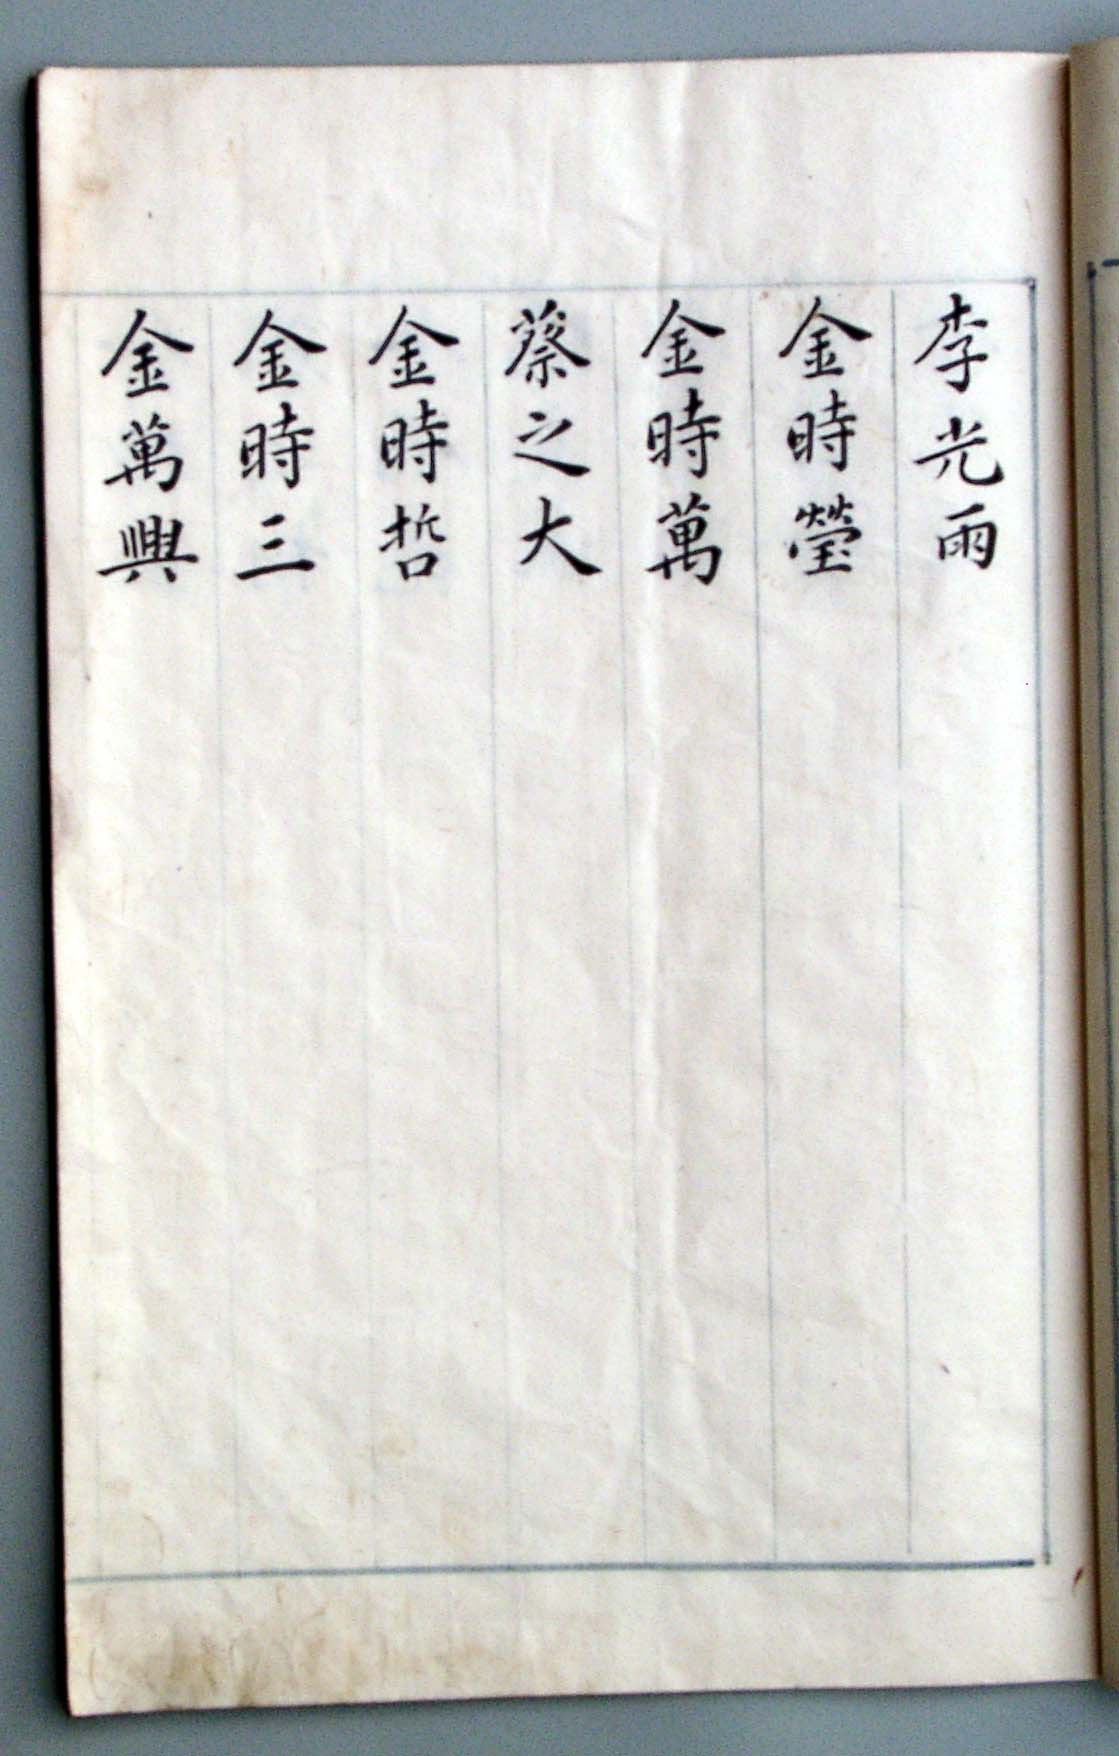 李光雨
金時瑩
金時萬
蔡之大
金時哲
金時三
金萬興